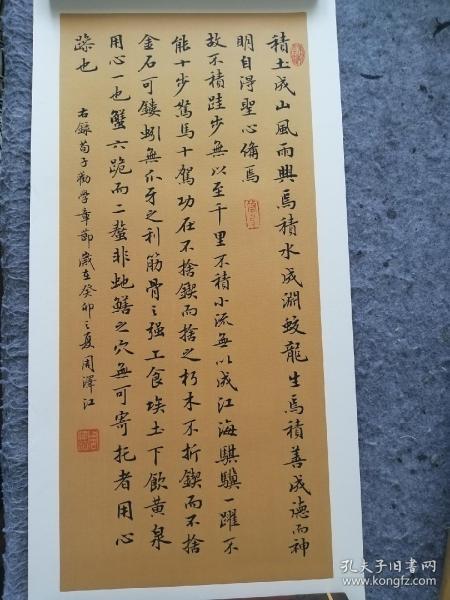 積土成山風雨興焉積水成淵蛟龍生焉積善成德而神
明自得聖心備焉
故不積跬步無以至千里不積小流無以成江海騏驥一躍不
能十步駑馬十駕功在不捨鍥而捨之朽木不折鍥而不捨
金石可鏤蚓無爪牙之利筋骨之强上食埃土下飲黃泉
用心一也蟹六跪而二螯非虵鱔之穴無可寄托者用心
躁也
右錄荀子勸学章節歲在癸卯之夏周澤江
孔夫子旧书网
www.kongfz.com